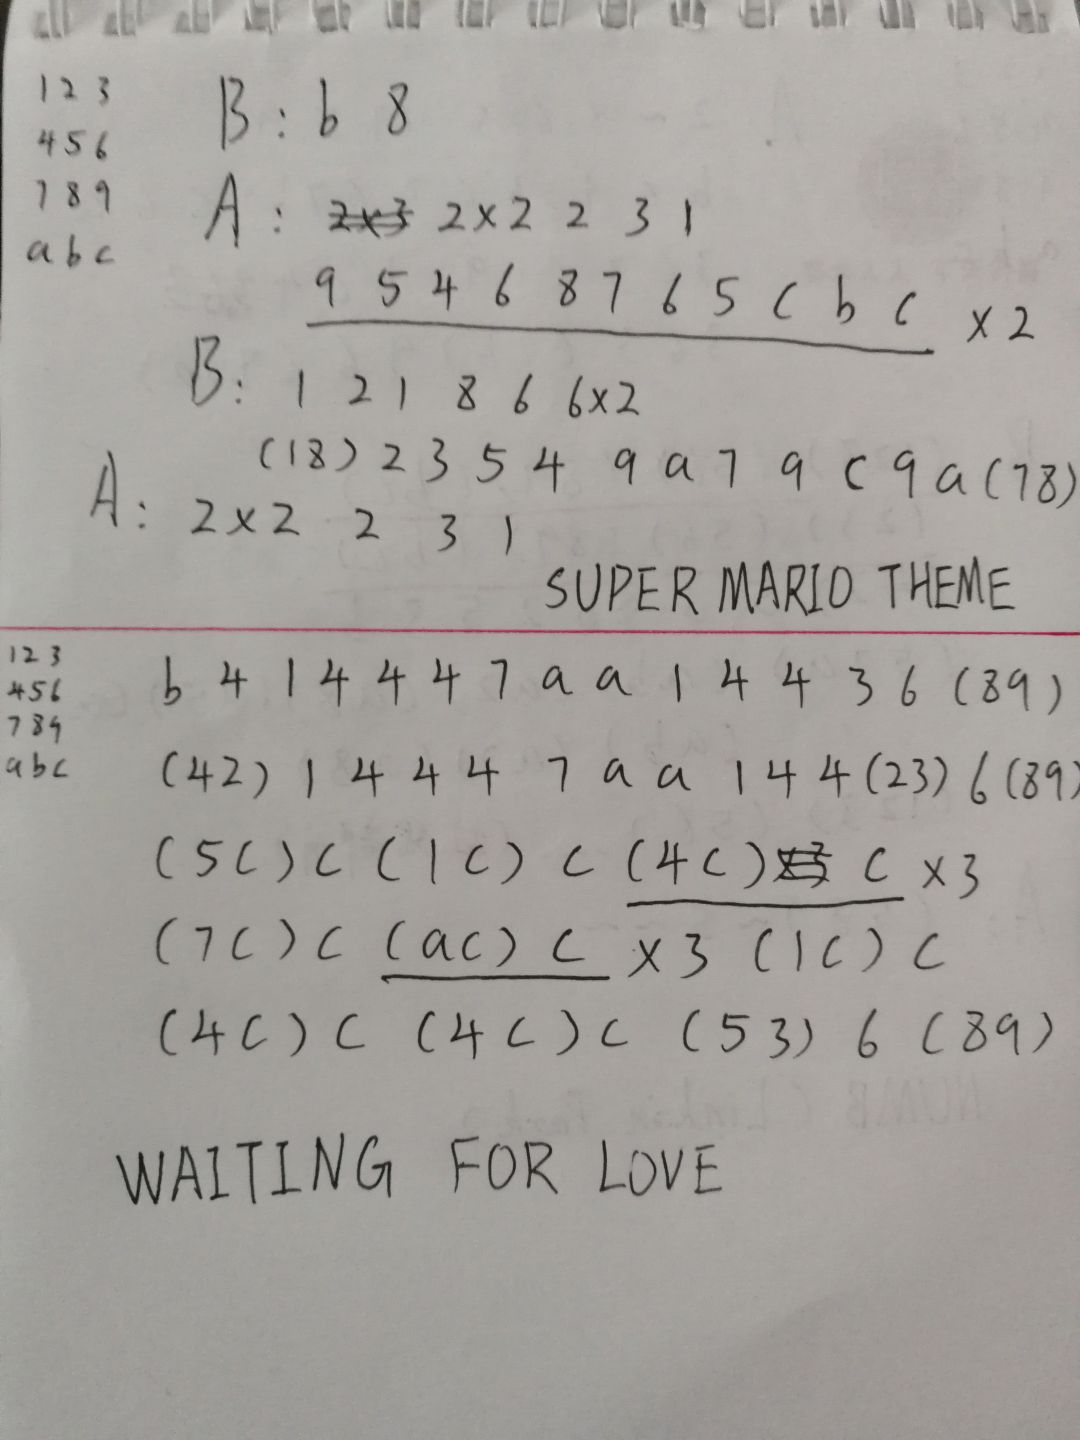 1 2 3
4 5 6
7 8 9
a b c
B: b 8
A: 2x3 2x2 2 3 1
9 5 4 6 8 7 6 5 c b c x2
B: 1 2 1 8 6 6x2
(18) 2 3 5 4 9 a 7 9 c 9 a (78)
A: 2x2 2 3 1
SUPER MARIO THEME
1 2 3
4 5 6
7 8 9
a b c
b 4 1 4 4 4 7 a a 1 4 4 3 6 (89)
(42) 1 4 4 4 7 a a 1 4 4 (23) 6 (89)
(5c) c (1c) c (4c) x3 c x3
(7c) c (ac) c x3 (1c) c
(4c) c (4c) c (53) 6 (89)
WAITING FOR LOVE